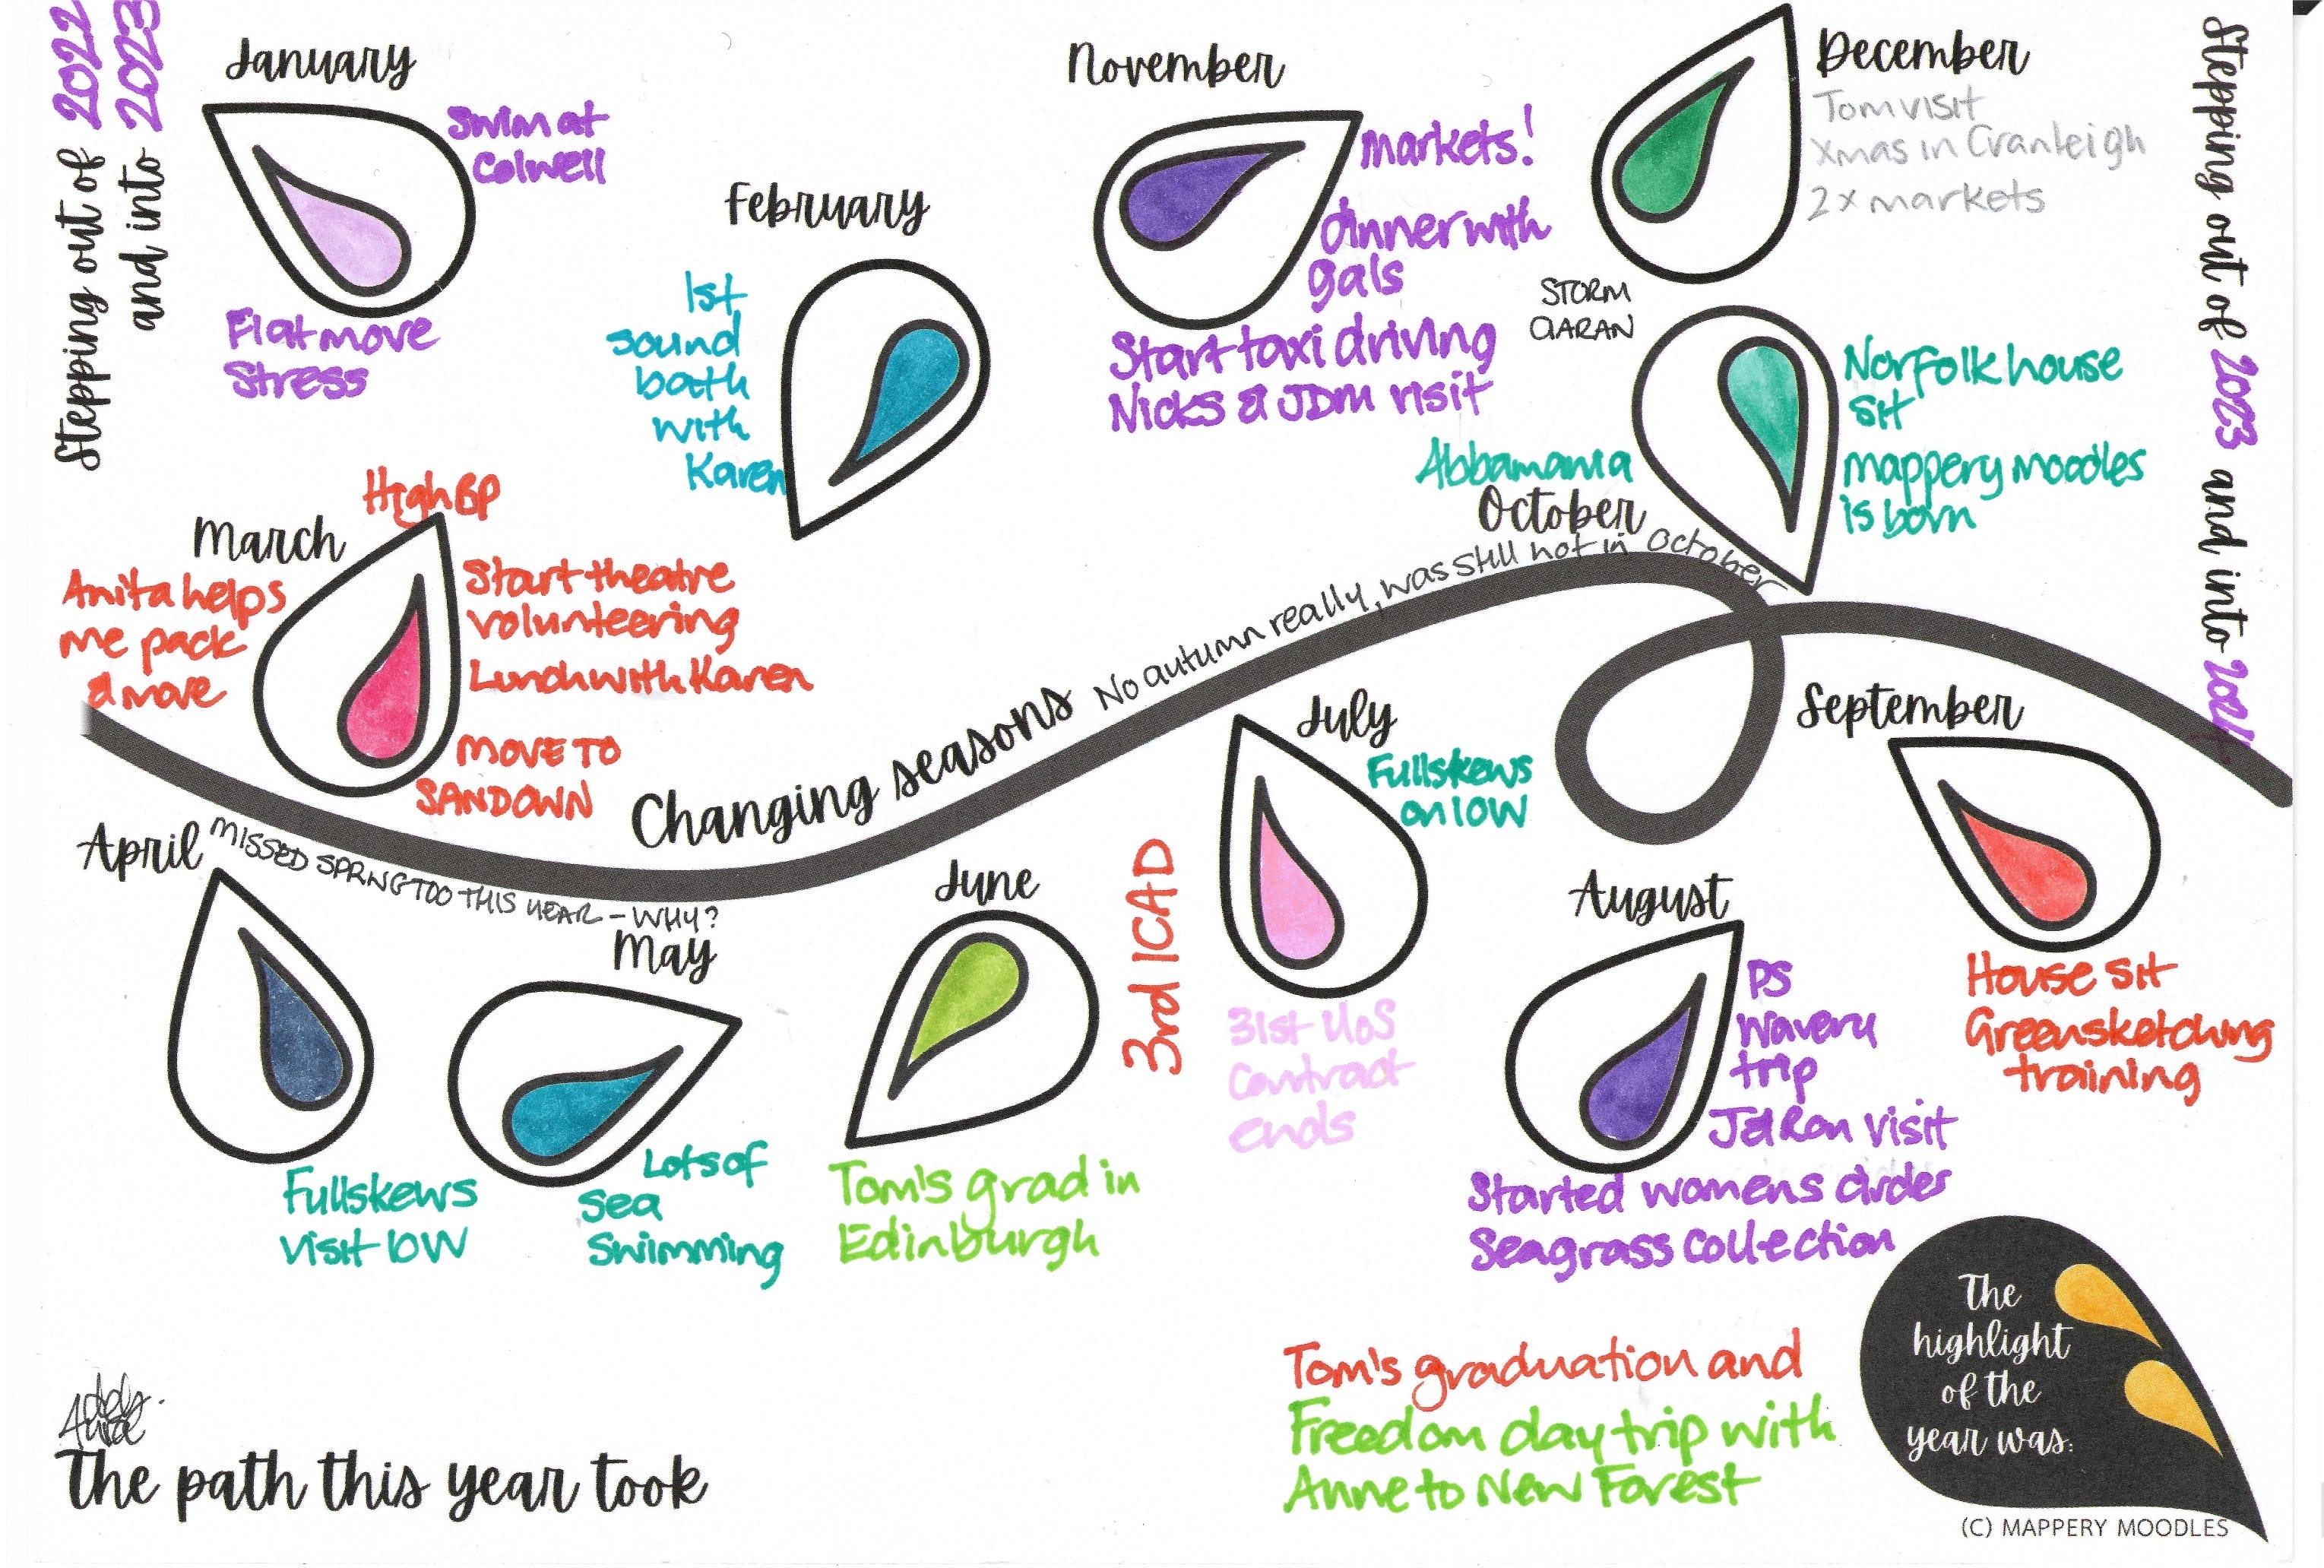 Stepping out of 2022
and into 2023
January
Swim at
Colwell
Flat move
Stress
February
1st
sound
bath
with
Karen
March
High BP
Anita helps
me pack
& move
Start theatre
volunteering
Lunch with Karen
MOVE TO
SANDOWN
November
markets!
dinner with
gals
Start taxi driving
Nicks & JDM visit
December
Tom visit
Xmas in Cranleigh
2 x markets
STORM
CIARAN
Abbamania
October
Norfolk house
sit
mappery moodles
is born
Stepping out of 2023 and into 2024
Changing seasons
No autumn really, was still hot in October
April
MISSED SPRNG TOO THIS YEAR - WHY?
Fullskews
visit IOW
May
Lots of
Sea
Swimming
June
Tom's grad in
Edinburgh
3rd ICAD
July
Fullskews
on IOW
31st UoS
Contract
ends
August
PS
Wavery
trip
J&Ron visit
Started womens circles
Seagrass collection
September
House sit
Greensketching
training
The
highlight
of the
year was:
Tom's graduation and
Freedom day trip with
Anne to New Forest
The path this year took
(C) MAPPERY MOODLES